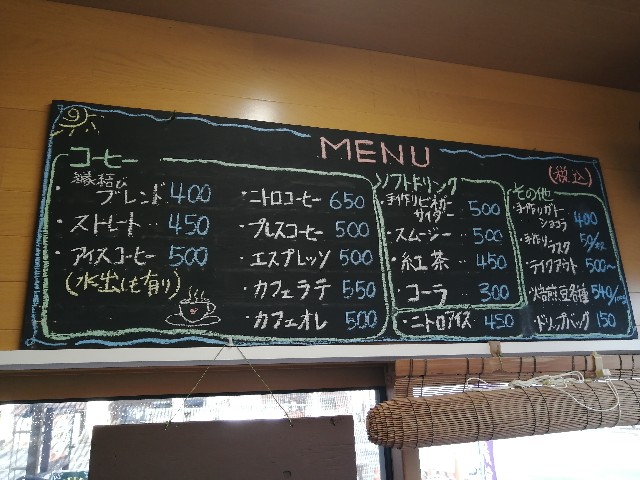 MENU
(税込)
コーヒー
・縁結び
ブレンド 400
・ストレート‥ 450
・アイスコーヒー 500
(水出しも有り)
・ニトロコーヒー 650
・プレスコーヒー 500
・エスプレッソ 500
・カフェラテ 550
・カフェオレ 500
ソフトドリンク
・手作りビネガー
サイダー‥ 500
・スムージー‥ 500
・紅茶‥ 450
・コーラ 300
・ニトロアイス 450
その他
・手作りガトー
ショコラ 400
・手作り
ラスク 50/
・テイクアウト 500〜
・焙煎豆各種 540/
・ドリップバッグ 150